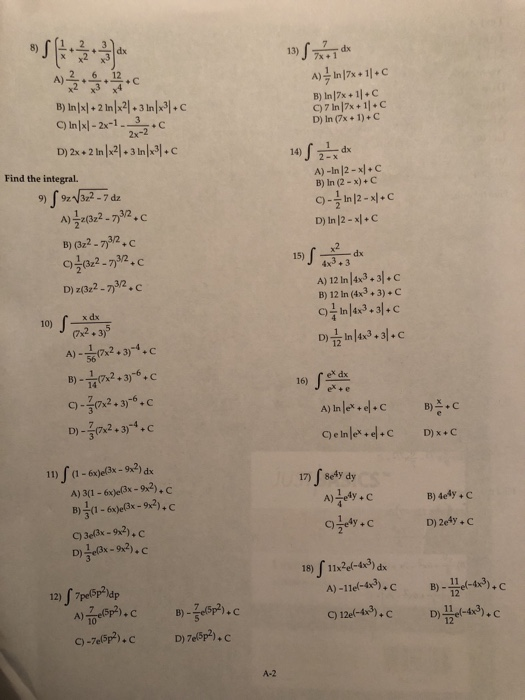 8) ∫ (1/x + 2/x2 + 3/x3) dx
A) 2/x2 + 6/x3 + 12/x4 + C
B) ln|x| + 2 ln|x2| + 3 ln|x3| + C
C) ln|x| - 2x-1 - 3/2x-2 + C
D) 2x + 2 ln|x2| + 3 ln|x3| + C
Find the integral.
9) ∫ 9z√3z2 - 7 dz
A) 1/2 z(3z2 - 7)3/2 + C
B) (3z2 - 7)3/2 + C
C) 1/2 (3z2 - 7)3/2 + C
D) z(3z2 - 7)3/2 + C
10) ∫ x dx/(7x2 + 3)5
A) - 1/56 (7x2 + 3)-4 + C
B) - 1/14 (7x2 + 3)-6 + C
C) - 7/3 (7x2 + 3)-6 + C
D) - 7/3 (7x2 + 3)-4 + C
11) ∫ (1 - 6x)e(3x - 9x2) dx
A) 3(1 - 6x)e(3x - 9x2) + C
B) 1/3 (1 - 6x)e(3x - 9x2) + C
C) 3e(3x - 9x2) + C
D) 1/3 e(3x - 9x2) + C
12) ∫ 7pe(5p2)dp
A) 7/10 e(5p2) + C B) - 7/5 e(5p2) + C
C) -7e(5p2) + C D) 7e(5p2) + C
13) ∫ 7/7x + 1 dx
A) 1/7 ln|7x + 1| + C
B) ln|7x + 1| + C
C) 7 ln|7x + 1| + C
D) ln (7x + 1) + C
14) ∫ 1/2 - x dx
A) -ln|2 - x| + C
B) ln (2 - x) + C
C) - 1/2 ln|2 - x| + C
D) ln|2 - x| + C
15) ∫ x2/4x3 + 3 dx
A) 12 ln|4x3 + 3| + C
B) 12 ln (4x3 + 3) + C
C) 1/4 ln|4x3 + 3| + C
D) 1/12 ln|4x3 + 3| + C
16) ∫ ex dx/ex + e
A) ln|ex + e| + C B) x/e + C
C) e ln|ex + e| + C D) x + C
17) ∫ 8e4y dy
A) 1/4 e4y + C B) 4e4y + C
C) 1/2 e4y + C D) 2e4y + C
18) ∫ 11x2e(-4x3) dx
A) -11e(-4x3) + C B) - 11/12 e(-4x3) + C
C) 12e(-4x3) + C D) 11/12 e(-4x3) + C
A-2